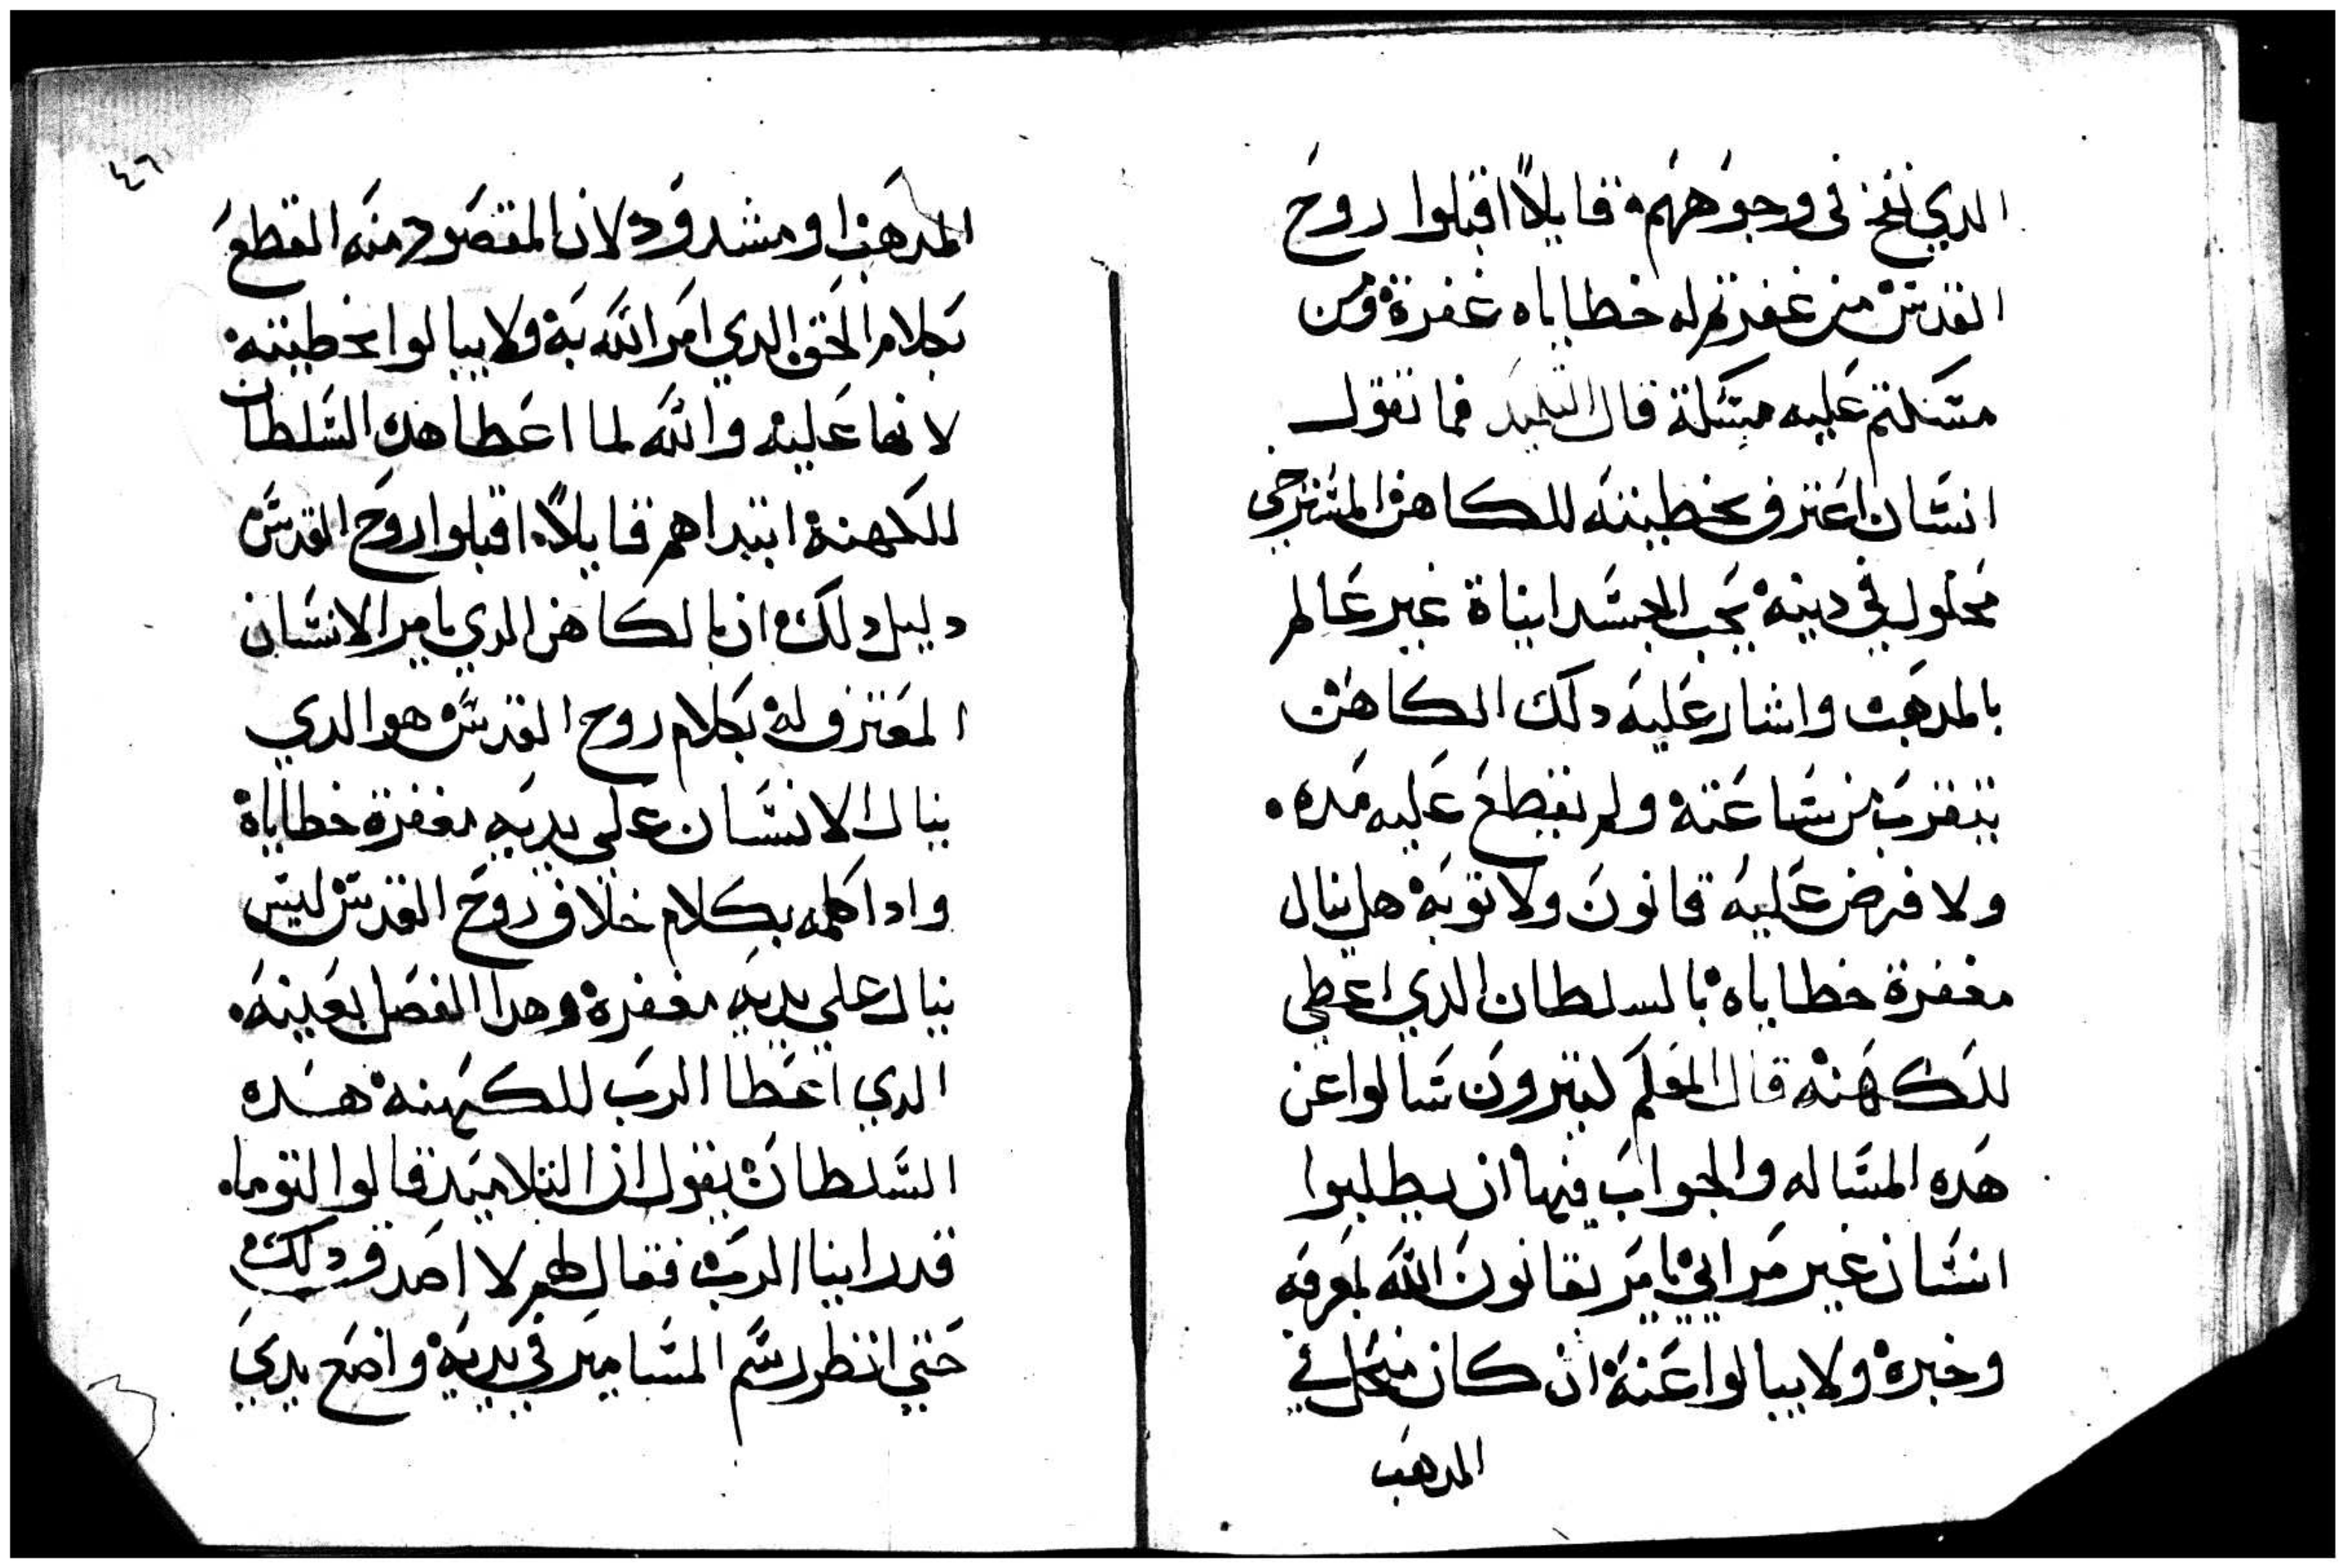 الدي نفخ في وجوههم قايلاً اقبلوا روح
القدس من غفرتم له خطاياه غفرة ومن
مسكتم عليه مسكة قال التلميد فما تقول
انسان اعترف بخطيته للكاهن المسترخي
محلول في دينه يحب الجسدانياة غير عالم
بالمدهب واشار عليه دلك الكاهن
يتقرب من ساعته ولم يقطع عليه مده
ولا فرض عليه قانون ولا توبه هل ينال
مغفرة خطاياه بالسلطان الدي اعطي
للكهنه قال المعلم ليترون سالوا عن
هده المساله والجواب فيها ان يطلبوا
انسان غير مرايي يامر بقانون الله بمعرفه
وخبره ولا يبالوا عنه ان كان منحل في
المدهب
٤٦
المدهب او مشدود لان المقصود منه القطع
بكلام الحق الدي امر الله به ولا يبالوا بخطيته
لانها عليه والله لما اعطا هده السلطان
للكهنة ابتداهم قايلاً اقبلوا روح القدس
دليل دلك ان بالكاهن الدي يامر الانسان
المعترف له بكلام روح القدس هو الدي
ينال الانسان علي يديه مغفرة خطاياة
وادا كلمه بكلام خلاف روح القدس ليس
ينال علي يديه مغفرة وهدا الفصل بعينه
الدي اعطا الرب للكهنة هده
السلطان يقول ان التلاميد قالوا لتوما
قد راينا الرب فقال لهم لا اصدق دلك
حتي انظر رسم المسامير في يديه واضع يدي